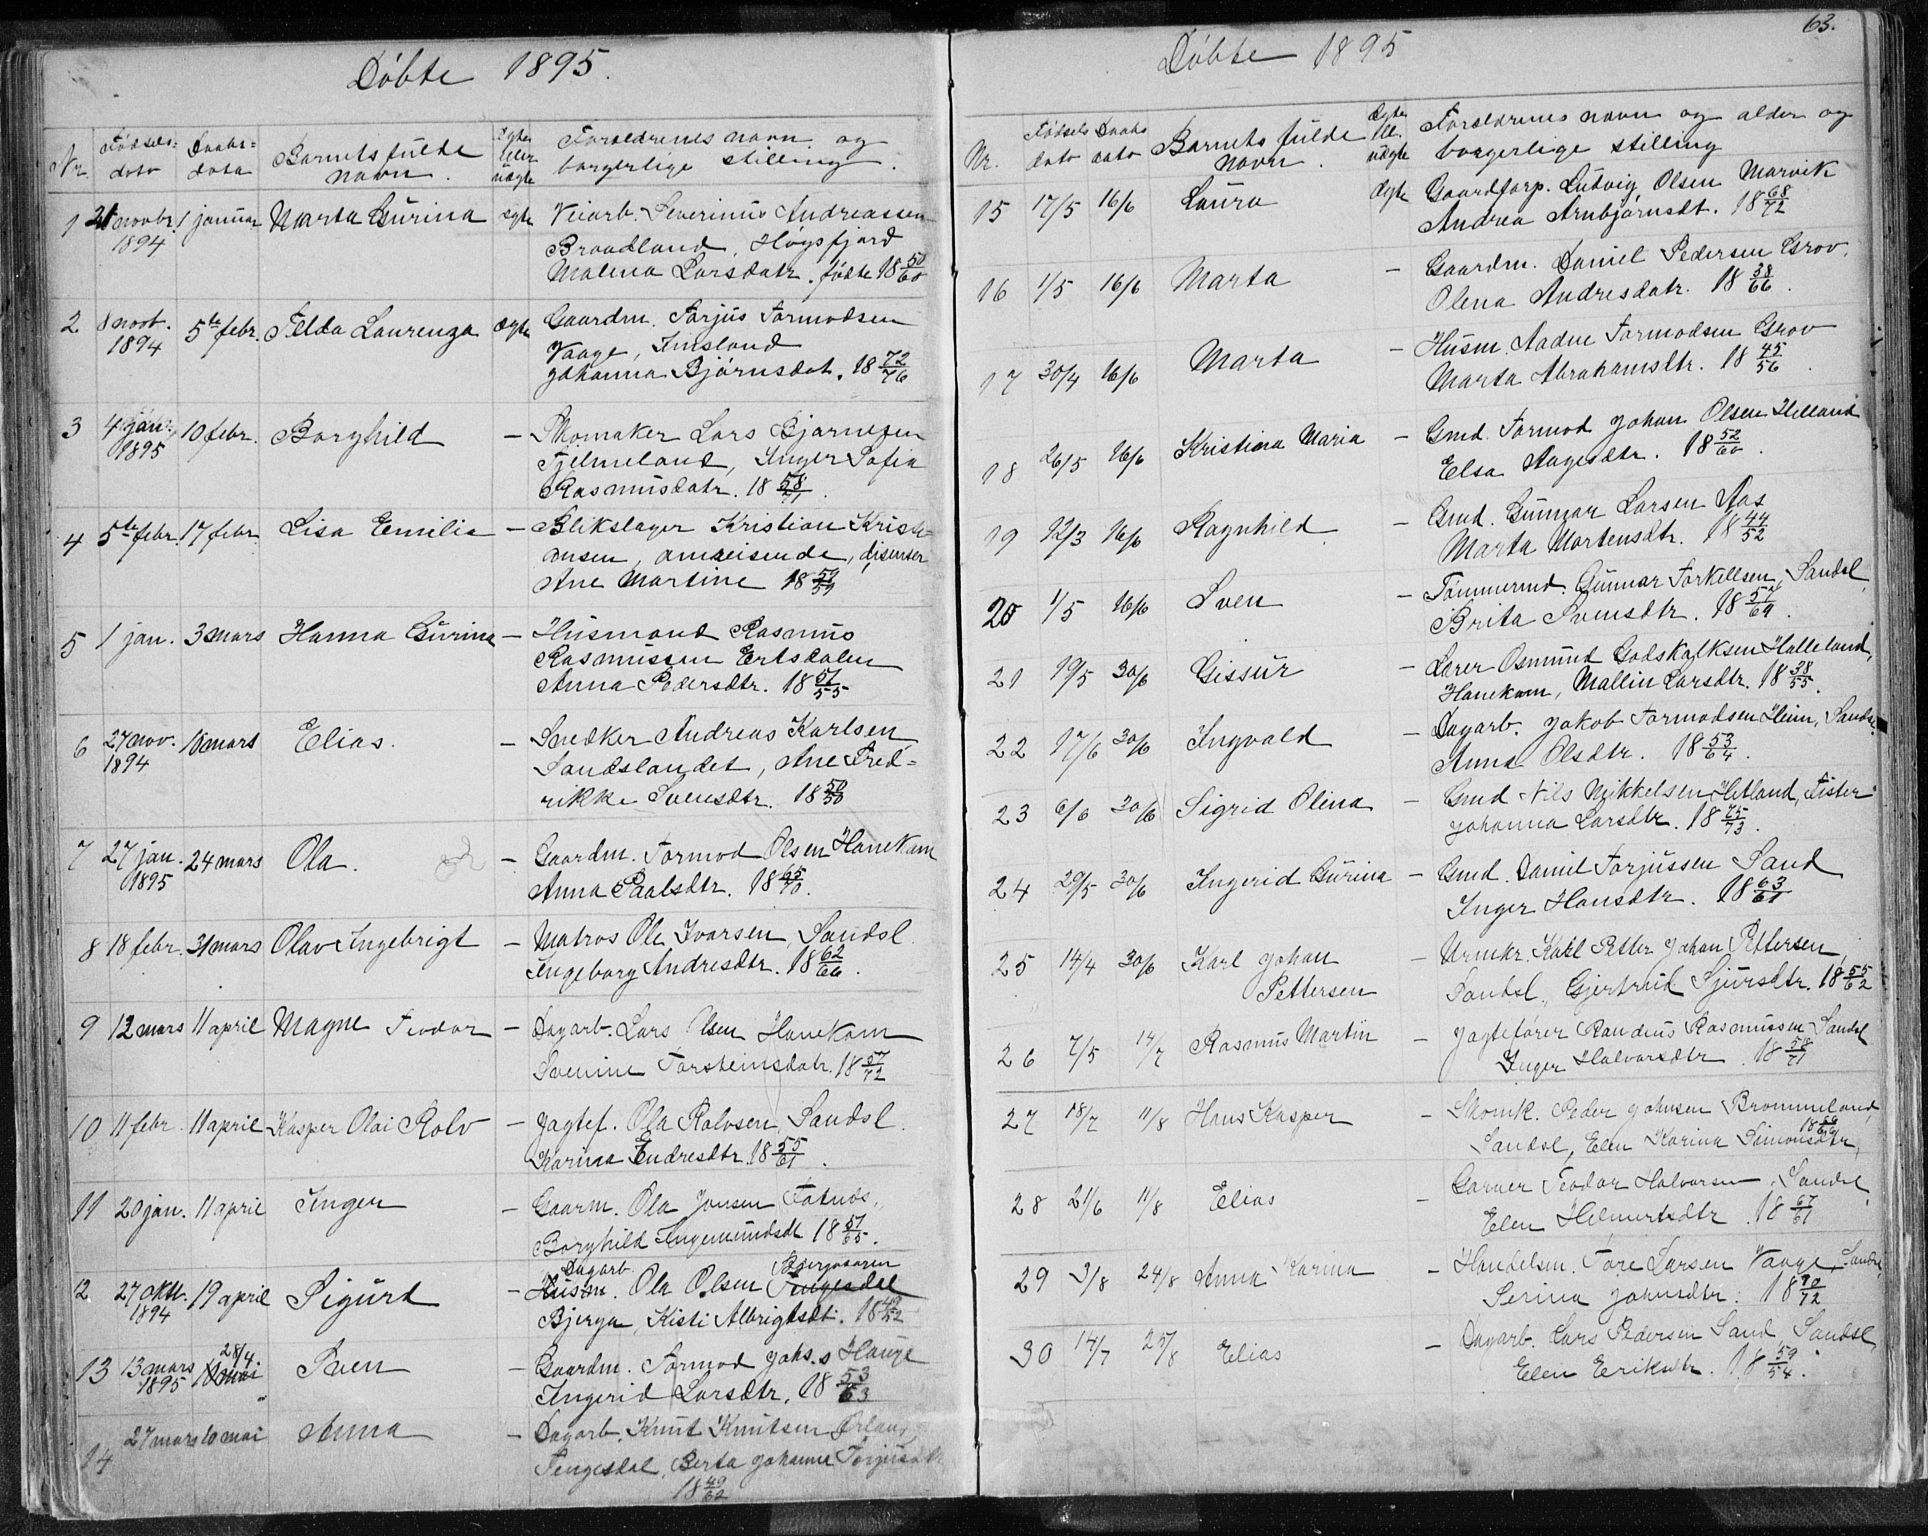 Døbte 1895.
Nr. Fødsels-dato Daabs-dato Barnets fulde navn. Egte eller uægte Forældrenes navn og borgerlige stilling.
1 21 novbr. 1894 1 januar Marta Gurina egte Veiarb. Severinus Andreassen
Braadland, Høgsfjord
Malena Larsdatr. fødte 18 50/60
2 8 novb. 1894 5te febr. Telda Laurenza ægte Gaardm. Tarjus Tormodsen
Vaage, Imsland
Johanna Bjørnsdat. 18 72/76
3 4 jan. 1895 10 febr. Borghild – Skomaker Lars Bjarnesen
Fjelmeland, Inger Sofia
Rasmusdatr. 18 58/71.
4 5te febr. 17 febr. Lisa Emilie – Blikslager Kristian Kristi-
ansen, omreisende, disenter
Ane Martine 18 59/59
5 1 jan. 3 mars Hanna Gurine – Husmand Rasmus
Rasmussen Ertsdalen
Anna Pedersdtr. 18 51/55
6 27 nov. 1894 10 mars Elias. – Snedker Andreas Karlsen
Sandslandet, Ane Fred-
rikke Svensdtr. 18 50/50
7 27 jan. 1895 24 mars Ola. – Gaardm. Tormod Olsen Hanekam
Anna Paalsdtr. 18 65/70.
8 18 febr. 31 mars Olav Ingebrigt – Matros Ole Ivarsen, Sandsl.
Ingeborg Andresdtr. 18 62/66.
9 12 mars 11 april Magne Teodor – Dagarb. Lars Olsen Hanekam
Svenine Torsteinsdatr. 18 57/72
10 11 febr. 11 april Kasper Olai Rolv – Jagtef. Ola Rolvsen, Sandsl.
Karina Endresdtr. 18 55/61.
11 20 jan. 11 april Inger – Gaarm. Ola Jonsen Fatnes,
Borghild Ingemundsdt 18 57/65.
Dagarb. Bjergaaren
12 27 oktr. 1894 19 april Sigurd – Husm. Ola Olsen Tengesdal
Bjerga, Kisti Albrigtsdt. 18 49/52
28/4
13 13 mars 1895 10 mai Sven – Gaardm. Tormod Johs.s Hauge
Ingerid Larsdtr. 18 53/63
14 27 mars 10 mai Anna – Dagarb. Knut Knutsen Ørland,
Tengesdal, Berta Johanna Torjusdtr
18 49/62
63.
Døbte 1895
Nr. Fødsels dato Daabs dato Barnets fulde navn. Egte ell. uægte Forældrenes navn og alder og borgerlige stilling
15 17/5 16/6 Laura ægte Gaardforp. Ludvig Olsen Marvik
Andrea Arnbjørnsdt. 18 68/72
16 1/5 16/6 Marta – Gaardm. Daniel Pedersen Grov,
Olena Andresdatr. 18 38/66.
17 30/4 16/6 Marta – Husm. Aadne Tormodsen Grov
Marta Abrahamsdtr. 18 45/56.
18 26/5 16/6 Kristina Maria – Gmd. Tormod Johan Olsen Helland
Elsa Aagesdtr. 18 52/60.
19 12/3 16/6 Ragnhild – Gmd. Gunnar Larsen Aas
Marta Mortensdtr. 18 44/52
20 1/5 16/6 Sven – Tømmermd. Gunnar Torkellsen, Sandsl.
Brita Svensdtr. 18 57/69.
21 19/5 30/6 Gissur – Lærer Osmund Godskalksen Halleland,
Hanekam, Mallin Larsdtr. 18 38/55.
22 17/6 30/6 Ingvald – Dagarb. Jakob Tormodsen Heim, Sandsl.
Anna Olsdtr. 18 53/64.
23 6/6 30/6 Sigrid Olina – Gmd Nils Mikkelsen Hetland, Fister
Johanna Larsdtr. 18 75/73.
24 29/5 30/6 Ingerid Gurina – Gmd. Daniel Torjussen Sand
Inger Hansdtr. 18 63/61
25 14/4 30/6 Karl Johan – Urmkr. Karl Petter Johan Pettersen,
Pettersen Sandsl., Gjertrud Sjursdtr. 18 55/62
26 7/5 14/7 Rasmus Martin – Jagtefører Randeus Rasmussen Sandsl
Inger Halvorsdtr. 18 58/71
27 18/7 11/8 Hans Kasper – Skomk. Peder Johnsen Brommeland,
Sandsl, Elen Karina Simonsdtr,
28 21/6 11/8 Elias – Garver Teodor Halvorsen, Sandsl,
Elen Helmertsdtr. 18 67/61
29 3/8 24/8 Anna Karina – Handelsm. Tore Larsen Vaage, Sandsl,
Serina Johnsdtr. 18 70/72
30 14/7 25/8 Elias – Dagarb. Lars Pedersen Sand, Sandsl,
Elen Eriksdtr. 18 59/54.